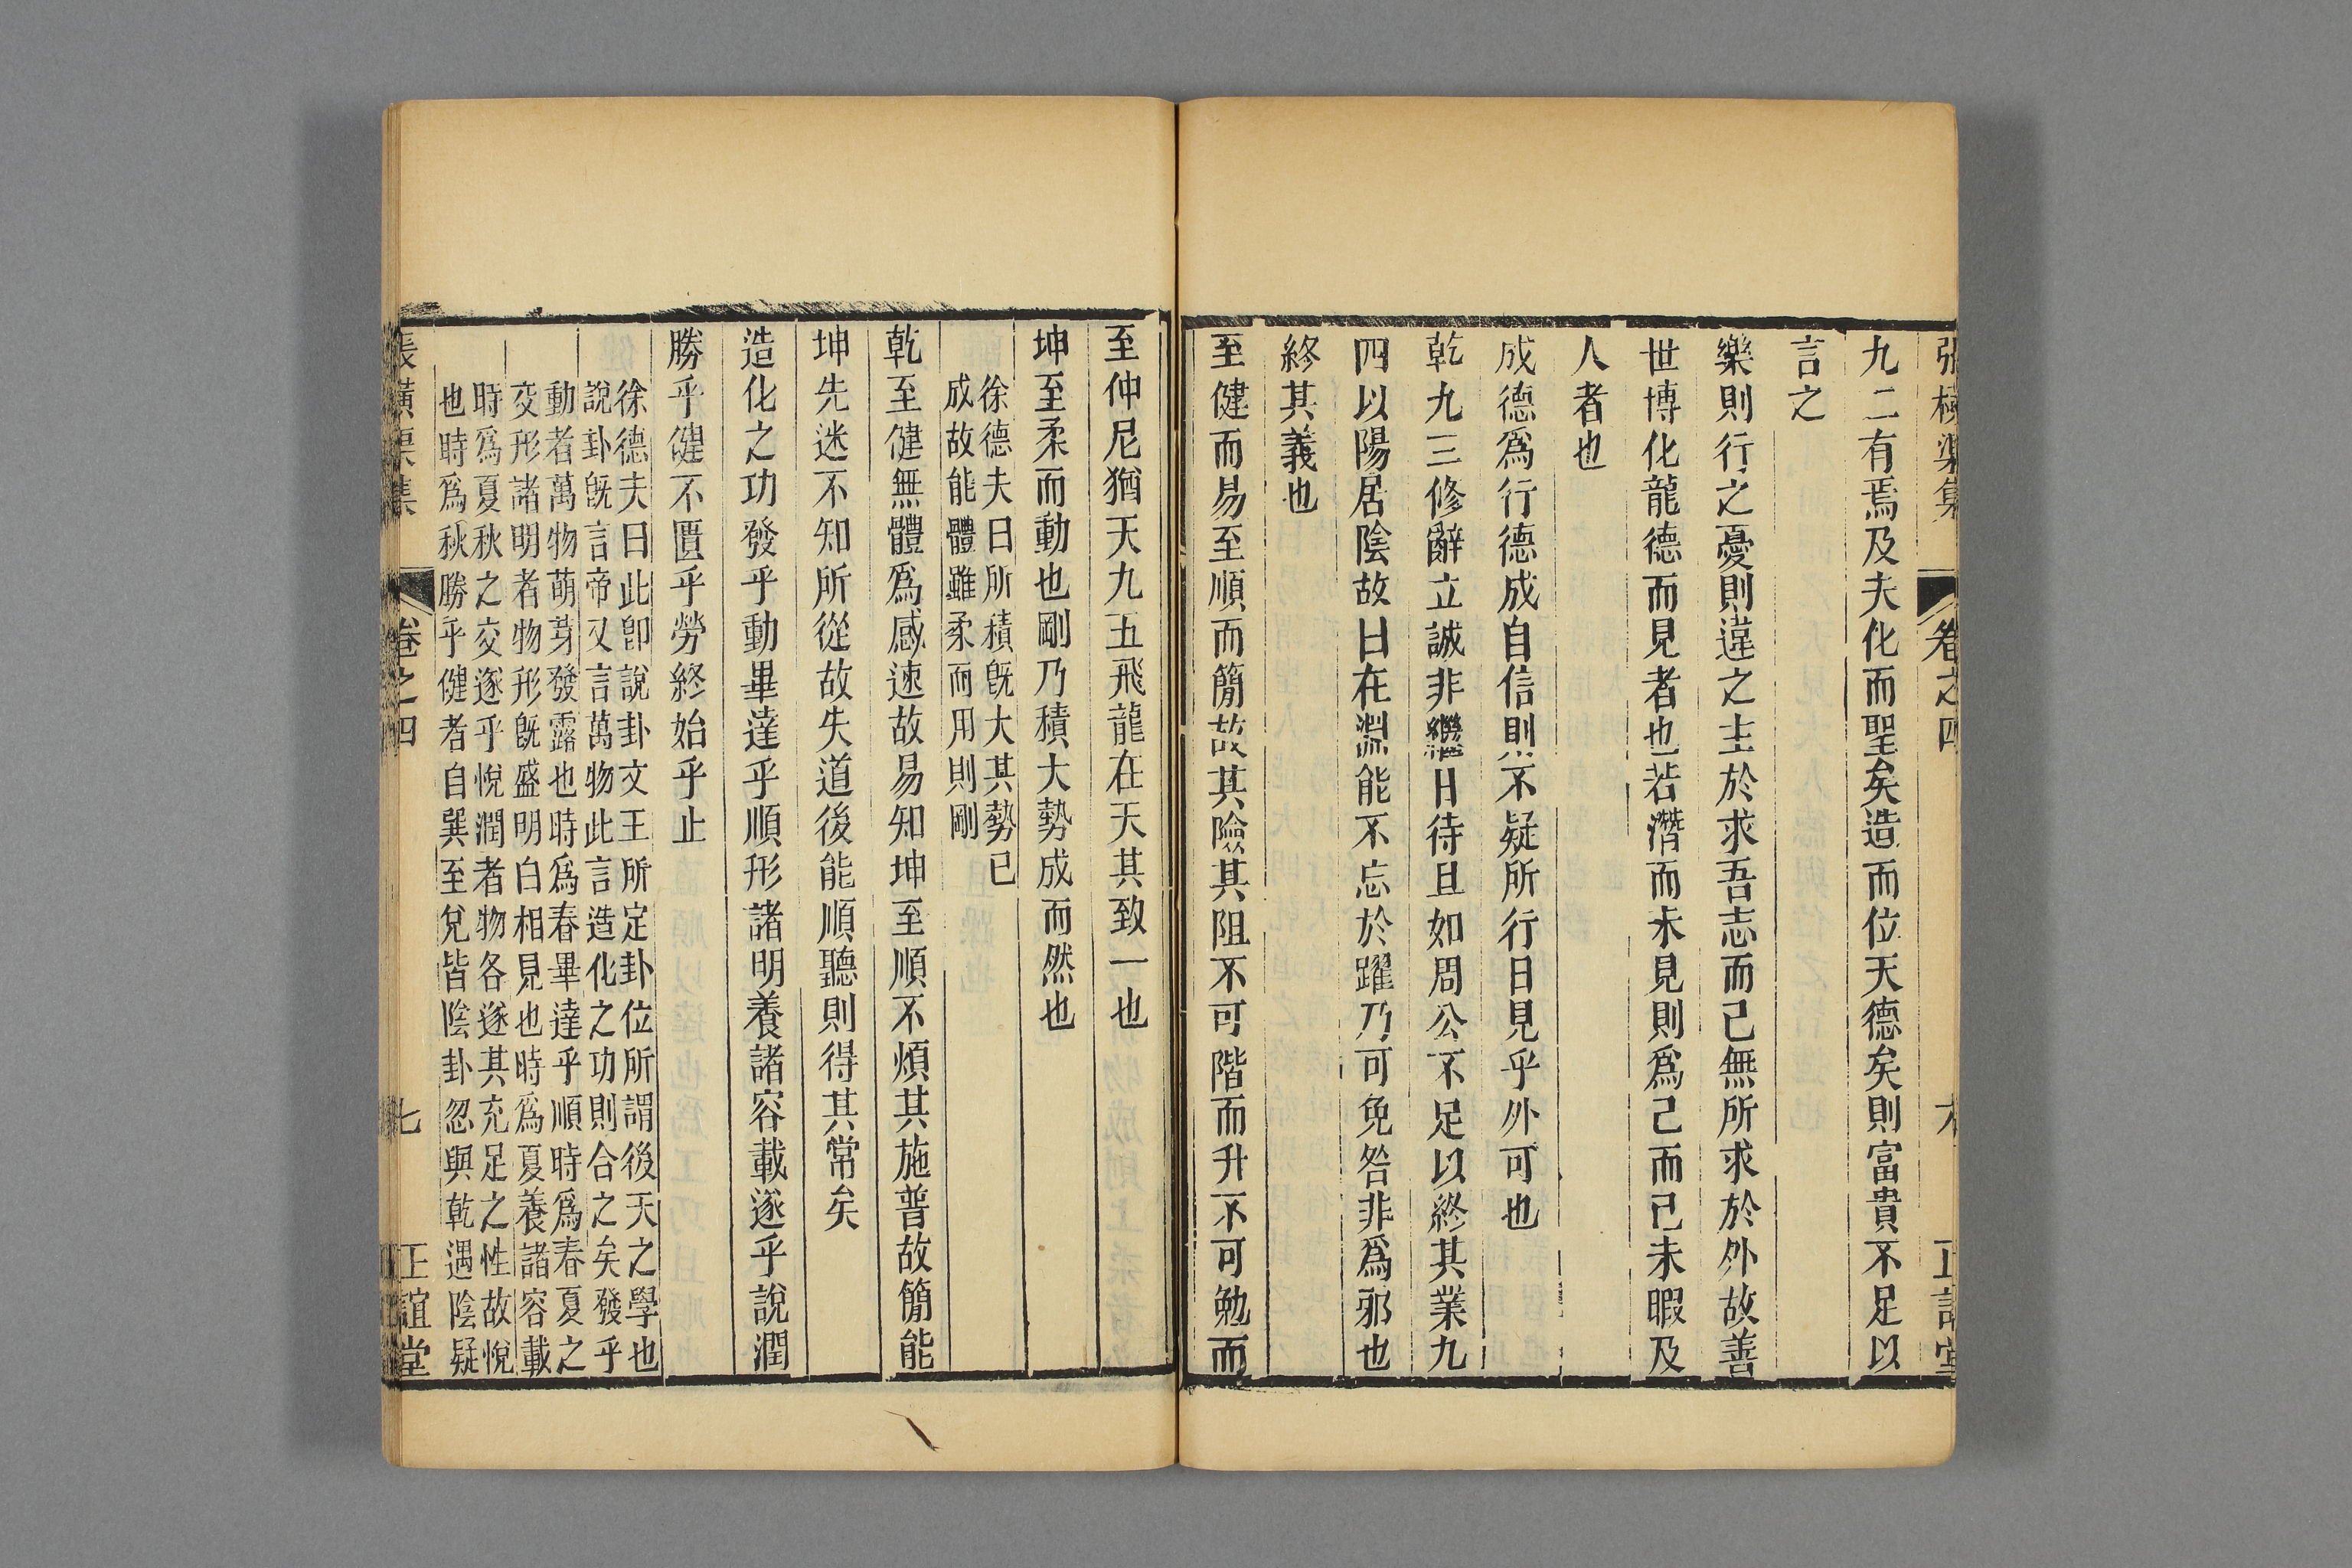 張橫渠集 卷之四 六 正誼堂
九二有焉及夫化而聖矣造而位天德矣則富貴不足以
言之
樂則行之憂則違之主於求吾志而己無所求於外故善
世博化龍德而見者也若潛而未見則爲己而已未暇及
人者也
成德爲行德成自信則不疑所行日見乎外可也
乾九三修辭立誠非繼日待旦如周公不足以終其業九
四以陽居陰故曰在淵能不忘於躍乃可免咎非爲邪也
終其義也
至健而易至順而簡故其險其阻不可階而升不可勉而
至仲尼猶天九五飛龍在天其致一也
坤至柔而動也剛乃積大勢成而然也
徐德夫曰所積旣大其勢已
成故能體雖柔而用則剛
乾至健無體爲感速故易知坤至順不煩其施普故簡能
坤先迷不知所從故失道後能順聽則得其常矣
造化之功發乎動畢達乎順形諸明養諸容載遂乎說潤
勝乎健不匱乎勞終始乎止
徐德夫曰此卽說卦文王所定卦位所謂後天之學也
說卦旣言帝又言萬物此言造化之功則合之矣發乎
動者萬物萌芽發露也時爲春畢達乎順時爲春夏之
交形諸明者物形旣盛明白相見也時爲夏養諸容載
時爲夏秋之交遂乎悅潤者物各遂其充足之性故悅
也時爲秋勝乎健者自巽至兌皆陰卦忽與乾遇陰疑
張橫渠集 卷之四 七 正誼堂